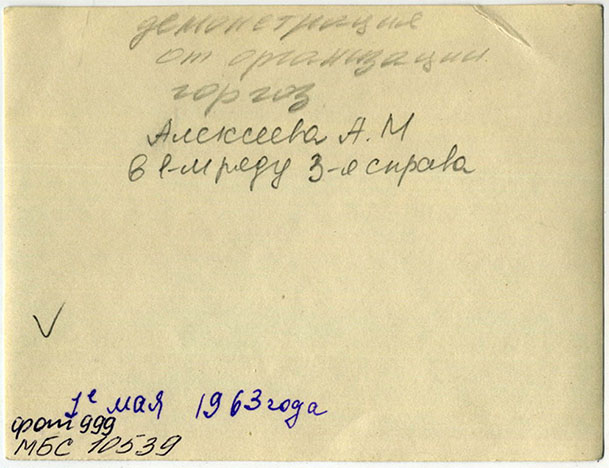 демонстрация
от организации
горгоз
Алексеева А.М
в 1-м ряду 3-я справа
1е мая 1963 года
фот 999
МБС 10539